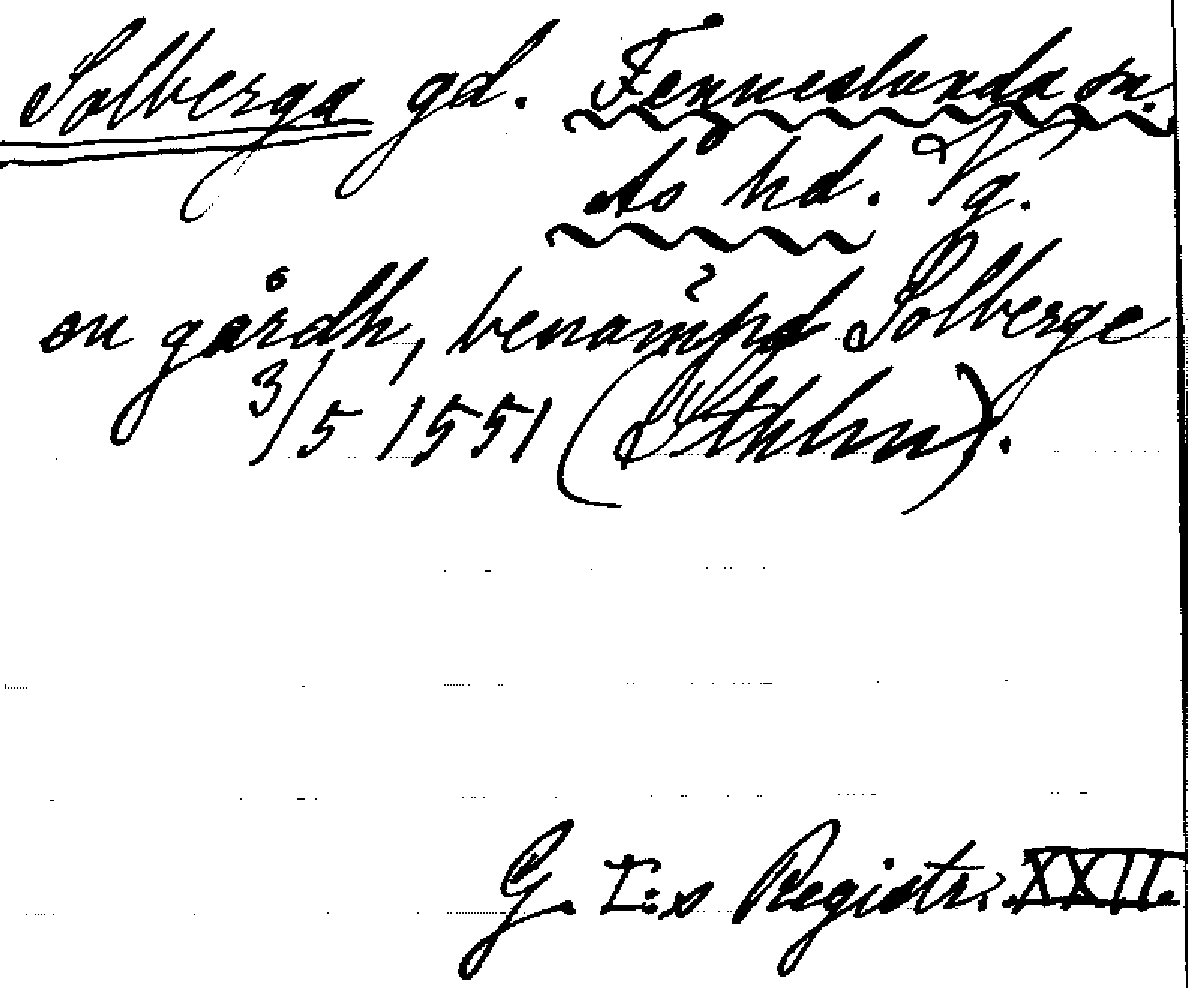 Solberga gd. Fenneslunda sn.
As hd. Vg.
en gårdh, benämpd Solberge
3/5 1551 (Sthlm).
G. I:s Registr. XXII.